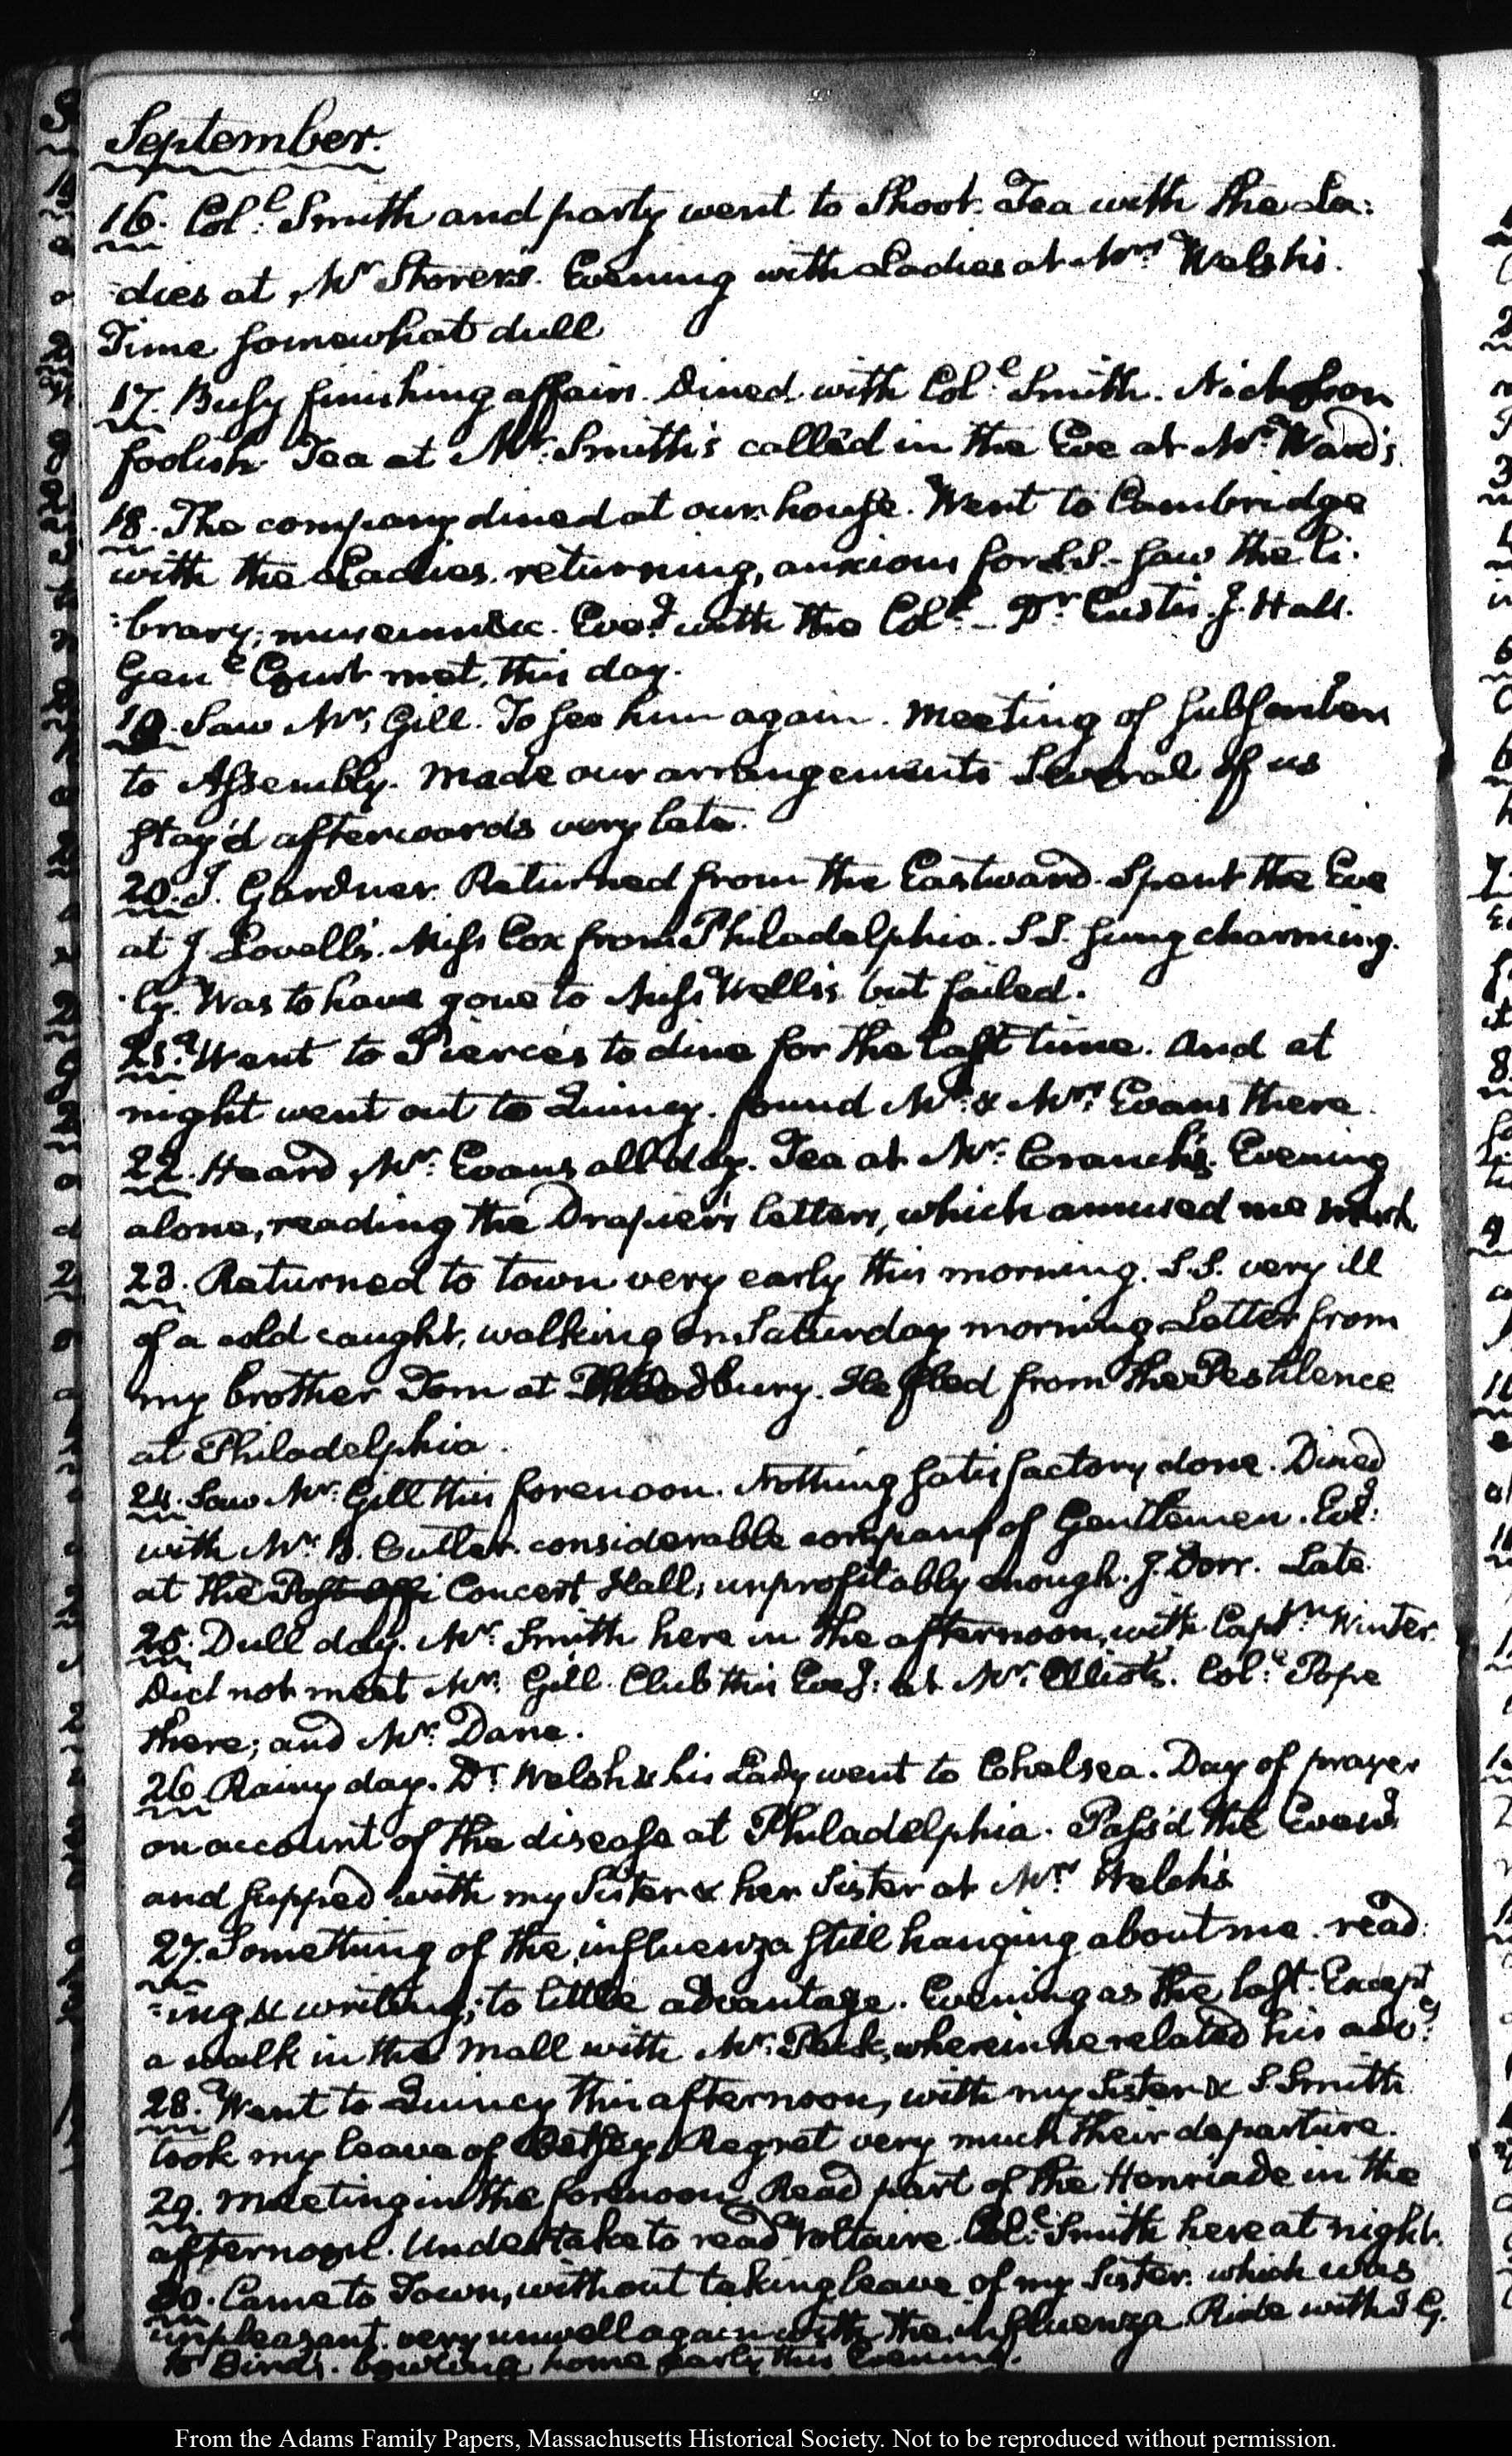 September.
16. Col:l Smith and party went to shoot. Tea with the La:
dies at Mr Storer's. Evening with Ladies at Mrs: Welsh's.
Time somewhat dull
17. Busy finishing affairs. Dined with Col:l Smith. Nicholson
foolish Tea at Mr: Smith's called in the Eve at Mr: Ward's.
18. The company dined at our house. Went to Cambridge
with the Ladies. returning, anxious for S.S.- saw the li:
:brary; museum &c. Eveg: with the Col:l - Dr Custis. J. Hall.
Genl Court met, this day.
19. Saw Mr: Gill. To see him again. Meeting of subscribers
to Assembly. Made our arrangements Several of us
stay'd afterwards very late.
20. J. Gardner. Returned from the Eastward. Spent the Eve
at J Lovell's. Miss Cox from Philadelphia. S S. sung charming.
:ly. Was to have gone to Miss Wells's but failed.
21. Went to Pierce's to dine for the last time. And at
night went out to Quincy. found Mr: & Mrs: Evans there.
22. Heard Mr: Evans all day. Tea at Mr: Cranch's. Evening
alone, reading the Drapier's letters, which amused me much.
23. Returned to town very early this morning. S.S. very ill
of a cold caught, walking on Saturday morning Letter from
my brother Tom at Woodbury. He fled from the Pestilence
at Philadelphia.
24. Saw Mr: Gill this forenoon. Nothing satisfactory done. Dined
with Mr: B. Cutler. considerable company of Gentlemen. Eveg:
at the Post Offi Concert Hall, unprofitably enough. J. Dorr. Late.
25. Dull day. Mr: Smith here in the afternoon, with Captn: Winter.
Did not meet Mr: Gill. Club this Eveg: at Mr: Elliot's. Col:l Pope
there; and Mr: Dane.
26 Rainy day. Dr Welsh & his Lady went to Chelsea. Day of prayer
on account of the disease at Philadelphia. Pass'd the Eveng
and supped with my Sister & her Sister at Mrs Welch's
27. Something of the influenza still hanging about me. read:
:ing & writing; to little advantage. Evening as the last. Except
a walk in the Mall with Mr: Peck, wherein he related his advs:
28. Went to Quincy this afternoon, with my Sister & S. Smith
took my leave of Betsey. Regret very much their departure.
29. Meeting in the forenoon. Read part of the Henriade in the
afternoon. Undertake to read Voltaire. Col:l Smith here at night.
30. Came to Town, without taking leave of my Sister: which was
unpleasant. very unwell again with the influenza. Ride with J G.
to Bird's. bowling home early this Evening.
From the Adams Family Papers, Massachusetts Historical Society. Not to be reproduced without permission.